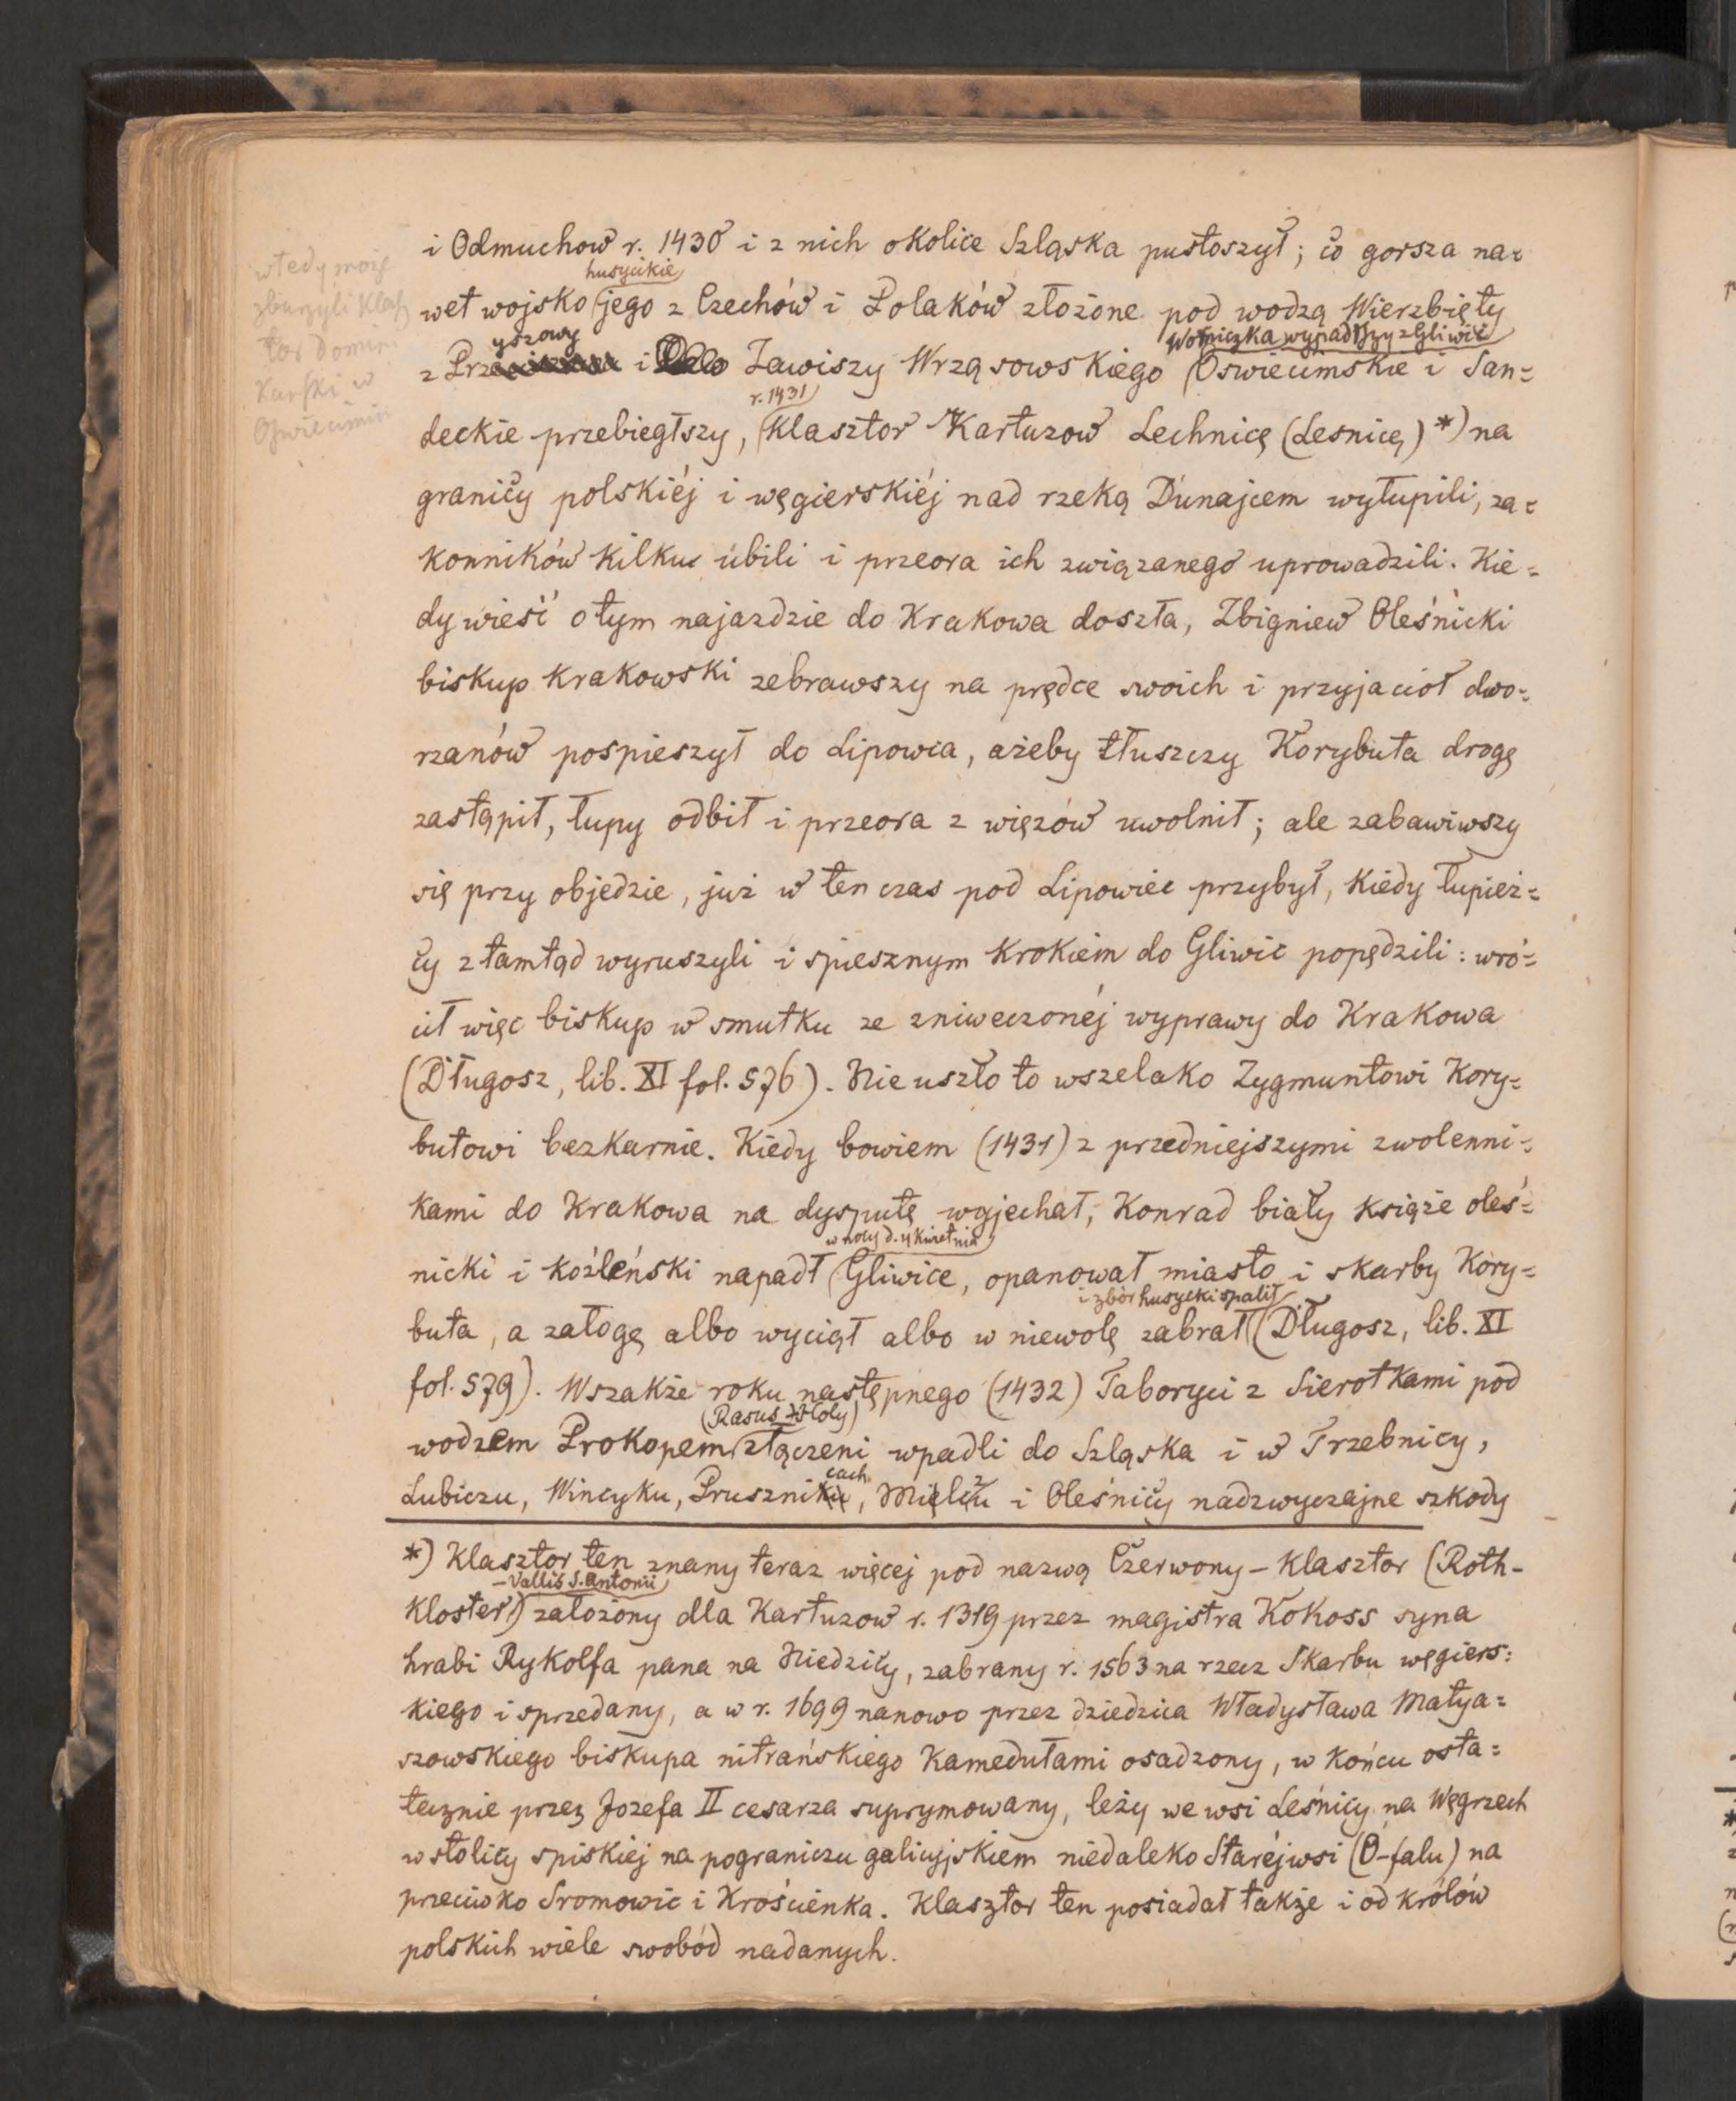 i Odmuchow r. 1430 i z nich okolice Szląska pustoszył; co gorsza na=
husyckie
wet wojsko jego z Czechów i Polaków złożone pod wodzą Wierzbięty
yszowy
wypadłszy z Gliwic
z Prz i Zawiszy Wrząsowskiego Oswiecimskie i San=
r. 1431
deckie przebiegłszy, Klasztor Kartuzow Lechnicę (Lesnicę) *) na
granicy polskiéj i węgierskiéj nad rzeką Dunajcem wyłupili, za=
konników kilku ubili i przeora ich związanego uprowadzili. Kie=
dy wieść o tym najazdzie do Krakowa doszła, Zbigniew Oleśnicki
biskup Krakowski zebrawszy na prędce swoich i przyjacioł dwo=
rzanów pospieszył do Lipowca, ażeby tłuszczy Korybuta drogę
zastąpił, łupy odbił i przeora z więzów uwolnił; ale zabawiwszy
się przy objedzie, już w ten czas pod Lipowiec przybył, kiedy łupież=
cy z tamtąd wyruszyli i spiesznym krokiem do Gliwic popędzili: wró=
cił więc biskup w smutku ze zniweczonéj wyprawy do Krakowa
(Długosz, lib. XI fol. 576). Nie uszło to wszelako Zygmuntowi Kory=
butowi bezkarnie. Kiedy bowiem (1431) z przedniejszymi zwolenni=
kami do Krakowa na dysputę wyjechał, Konrad biały książe oleś=
w nocy d. 4 Kwietnia
nicki i koźleński napadł Gliwice, opanował miasto i skarby Kory=
i zbór husycki spalił
buta, a załogę albo wyciął albo w niewolę zabrał (Długosz, lib. XI
fol. 579). Wszakże roku następnego (1432) Taboryci z Sierotkami pod
(Rasus
wodzem Prokopem złączeni wpadli do Szląska i w Trzebnicy,
cach
Lubiczu, Wincyku, Prusznik, Mielczu i Oleśnicy nadzwyczajne szkody
*) Klasztor ten znany teraz więcej pod nazwą Czerwony-Klasztor (Roth-
-Vallis S. Antonii
Kloster) założony dla Kartuzow r. 1319 przez magistra Kokoss syna
hrabi Rykolfa pana na Niedzicy, zabrany r. 1563 na rzecz Skarbu węgiers=
kiego i sprzedany, a w r. 1699 nanowo przez dziedzica Władysława Matya=
szowskiego biskupa nitrańskiego Kamedułami osadzony, w końcu osta=
tecznie przez Jozefa II cesarza suprymowany, leży we wsi Leśnicy na Węgrzech
w stolicy spiskiej na pograniczu galicyjskiem niedaleko Staréjwsi (O-falu) na
przeciwko Sromowic i Krościenka. Klasztor ten posiadał także i od królów
polskich wiele swobód nadanych.
wtedy może
zburzyli Klasz
tor Domini
kański w
Oswiecimiu